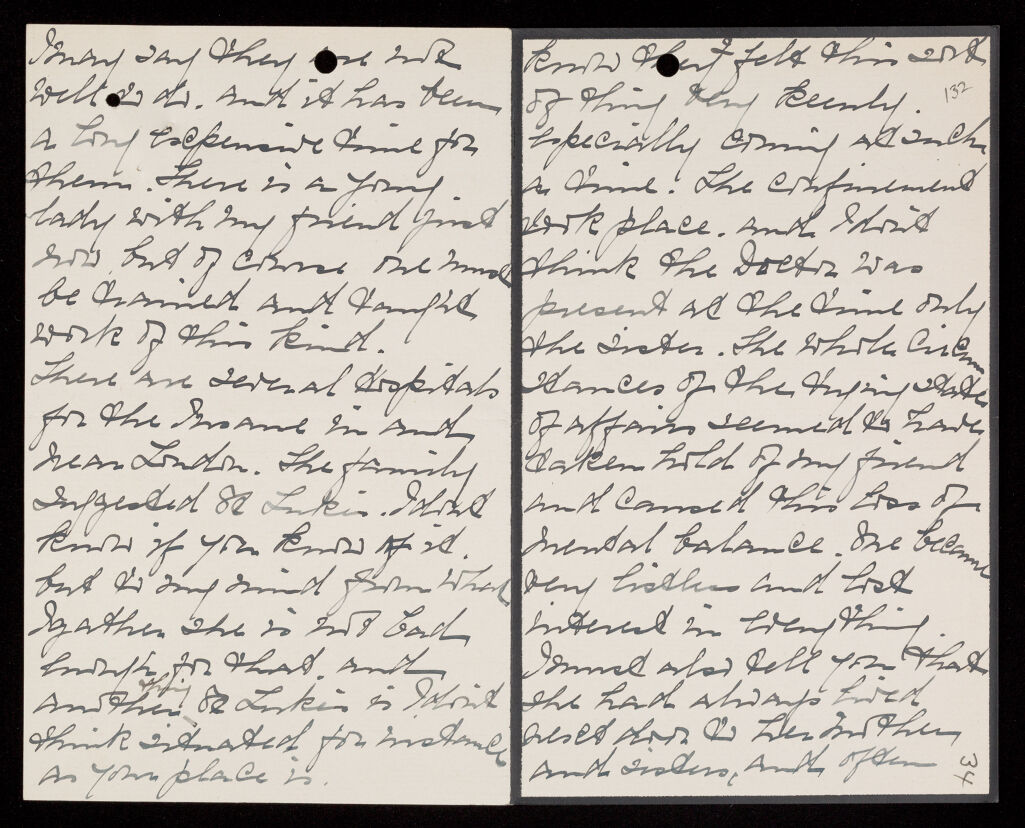 I may say they are not
well to do. and it has been
a long expensive time for
them. There is a young
lady with my friend just
now but of course one must
be trained and taught
work of this kind.
There are several Hospitals
for the Insane in and
near London. The family
suggested St Lukes. I dont
know if you know of it.
but to my mind from what
I gather she is not bad
enough for that. and
another thing St Lukes is I dont
think situated for instance
as your place is.
know they felt this sort
of thing very keenly.
132
especially coming at such
a time. The confinement
took place. and I dont
think the Doctor was
present at the time only
the sister. The whole Circum
stances of the trying state
of affairs seemed to have
taken hold of my friend
and caused this loss of
mental balance. She became
very listless and lost
interest in everything.
I must also tell you that
she had always lived
next door to her mother
and sisters, and often
34